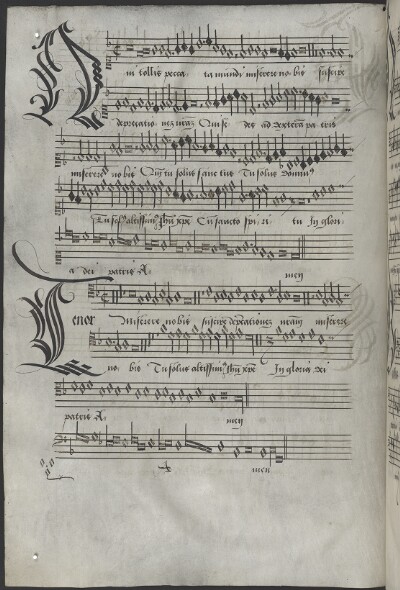 in tollis pecca ta mundi miserere no bis suscipe
deprecatio nez nrāz Qui se des ad dexterā pa tris
miserere no bis Qm̄ tu solus sanctus Tu solus domin9
Tu sol9 altissim9 ihū xp̄e Cū sancto spi ri tu In glori
a dei patris A
men
enor Miserere nobis suscipe dep̄cationez nrām miserere
no bis Tu solus altissim9 ihū xp̄e In gloria
patris A
men
men